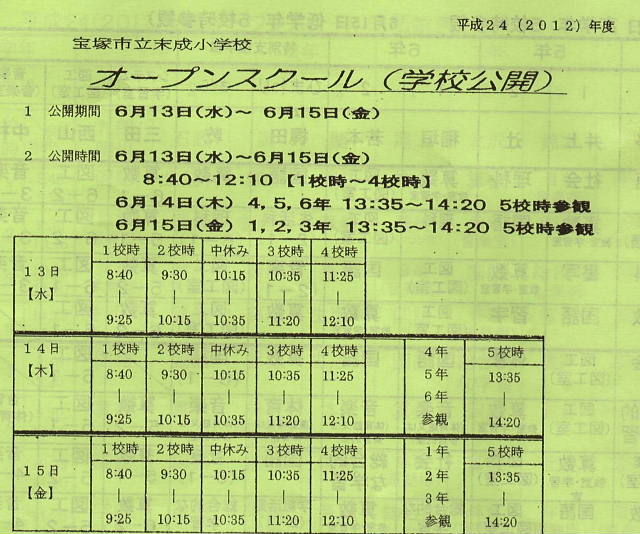 平成24(2012)年度
宝塚市立末成小学校
オープンスクール（学校公開）
1 公開期間 6月13日(水)～ 6月15日(金)
2 公開時間 6月13日(水)～6月15日(金)
8:40～12:10【1校時～4校時】
6月14日(木) 4,5,6年 13:35～14:20 5校時参観
6月15日(金) 1,2,3年 13:35～14:20 5校時参観
13日【水】 1校時 2校時 中休み 3校時 4校時
8:40 9:30 10:15 10:35 11:25
| | | | |
9:25 10:15 10:35 11:20 12:10
14日【木】 1校時 2校時 中休み 3校時 4校時 4年 5校時
8:40 9:30 10:15 10:35 11:25 5年 13:35
| | | | | 6年 |
9:25 10:15 10:35 11:20 12:10 参観 14:20
15日【金】 1校時 2校時 中休み 3校時 4校時 1年 5校時
8:40 9:30 10:15 10:35 11:25 2年 13:35
| | | | | 3年 |
9:25 10:15 10:35 11:20 12:10 参観 14:20